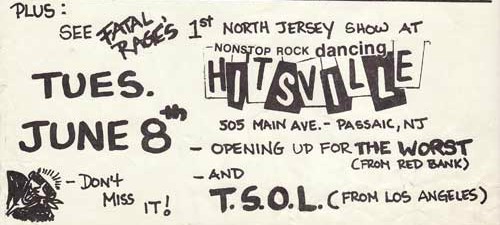 PLUS:
SEE FATAL RAGE'S 1st NORTH JERSEY SHOW AT
-NONSTOP ROCK dancing
HITSVILLE
TUES.
JUNE 8th
505 MAIN AVE. - PASSAIC, NJ
- OPENING UP FOR THE WORST
(FROM RED BANK)
- AND
T.S.O.L. (FROM LOS ANGELES)
- DON'T
MISS
IT!